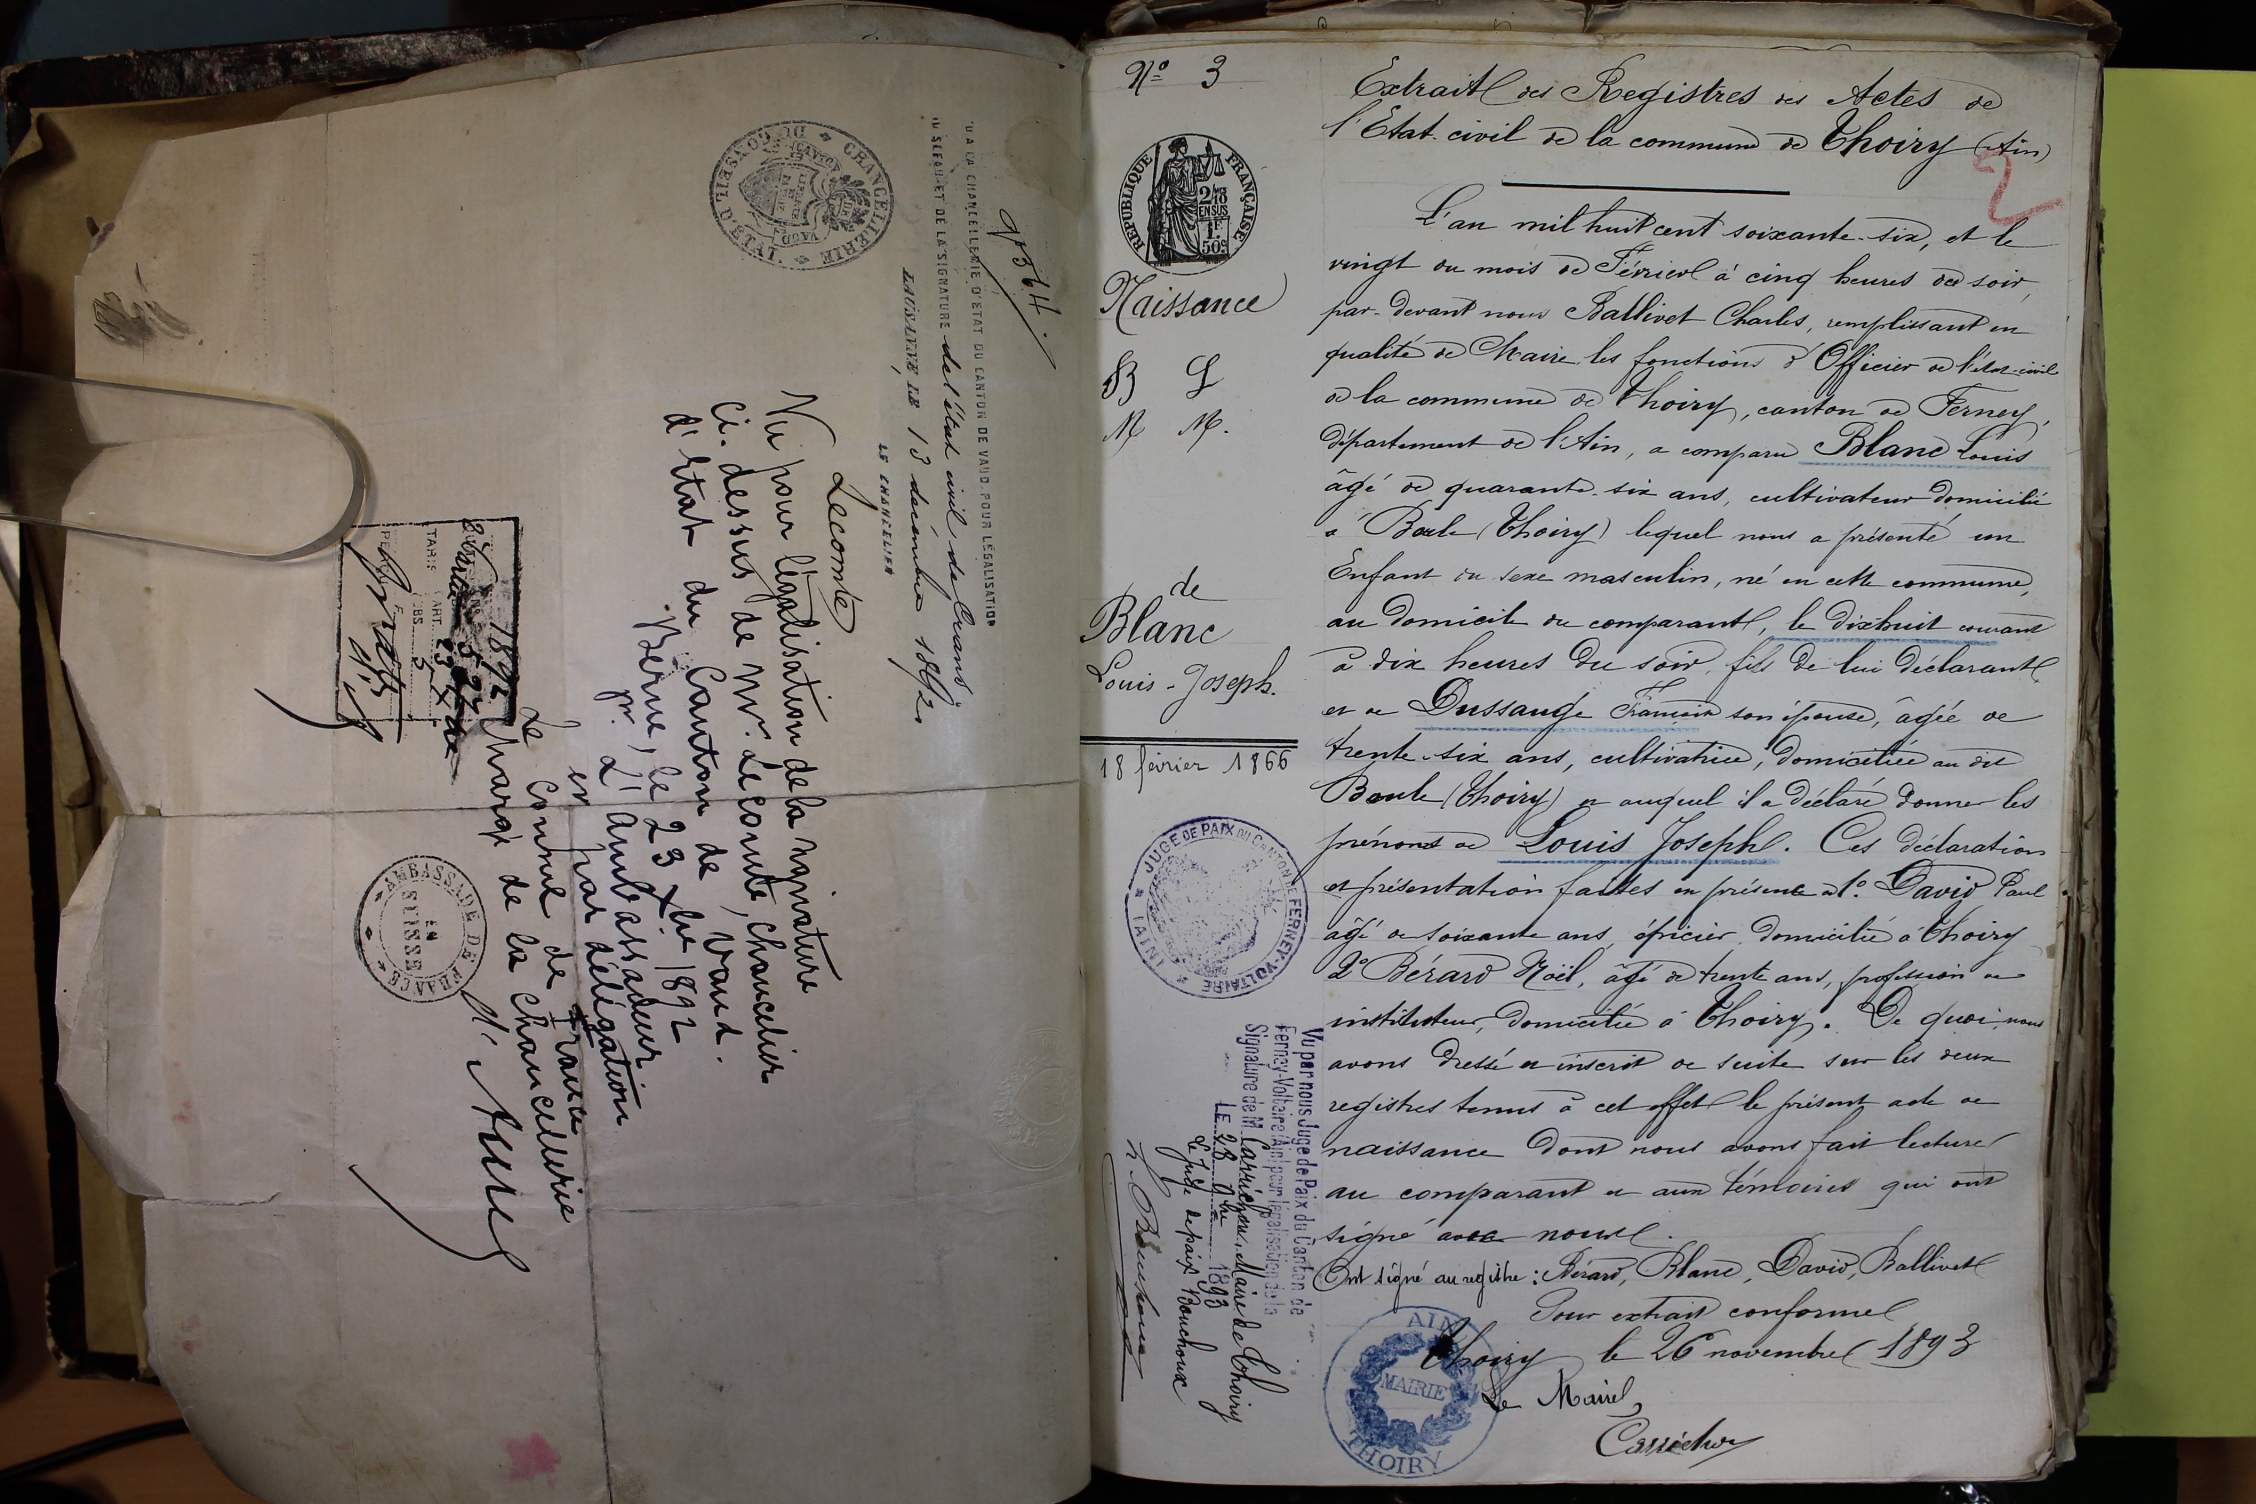 9364.
VU A LA CHANCELLERIE D'ETAT DU CANTON DE VAUD, POUR LEGALISATION
DU SCEAU ET DE LA SIGNATURE de l'état civil de Crans.
LAUSANNE LE 13 décembre 1892.
LE CHANCELIER
Lecomte
CHANCELLERIE DU CONSEIL D'ETAT
CANTON DE VAUD
LIBERTE ET PATRIE
Vu pour légalisation de la signature
ci-dessus de Mr. Lecomte, Chancelier
d'Etat du Canton de Vaud.
Berne, le 23 Xbre 1892
pr. L'ambassadeur
et par délégation
Le Consul de France
chargé de la Chancellerie
AMBASSADE DE FRANCE
EN
SUISSE
1892
TARIF
ART.
Gratis
Nº 3
REPUBLIQUE FRANÇAISE
2/10
EN SUS
1F
50c
Naissance
B L
M M.
de
Blanc
Louis-Joseph.
18 février 1866
JUGE DE PAIX DU CANTON DE FERNEY-VOLTAIRE
(AIN)
Vu par nous Juge de Paix du Canton de
Ferney-Voltaire (Ain) pour légalisation de la
Signature de M. Carrichon, Maire de Thoiry
LE 28 9bre 1893
Le Juge de paix Bouchoux
Extrait des Registres des Actes de
l'Etat-civil de la commune de Thoiry (Ain)
2
L'an mil huit cent soixante-six, et le
vingt du mois de Février à cinq heures du soir,
par-devant nous Ballivet Charles, remplissant en
qualité de Maire les fonctions d'Officier de l'état-civil
de la commune de Thoiry, canton de Ferney,
département de l'Ain, a comparu Blanc Louis
âgé de quarante-six ans, cultivateur domicilié
à Boule (Thoiry) lequel nous a présenté un
Enfant du sexe masculin, né en cette commune,
au domicile du comparant, le dixhuit courant
à dix heures du soir, fils de lui déclarant
et de Dussauge Françoise son épouse, âgée de
trente-six ans, cultivatrice, domiciliée au dit
Boule (Thoiry) et auquel il a déclaré donner les
prénoms de Louis Joseph. Ces déclaration
et présentation faites en présence de 1º. David Paul
âgé de soixante ans, épicier, domicilié à Thoiry
2º Bérard Noël, âgé de trente ans, profession de
instituteur, domicilié à Thoiry. De quoi nous
avons dressé et inscrit de suite sur les deux
registres tenus à cet effet le présent acte de
naissance dont nous avons fait lecture
au comparant et aux témoins qui ont
signé avec nous.
Ont signé au registre : Bérard, Blanc, David, Ballivet
Pour extrait conforme
Thoiry le 26 novembre 1893
Le Maire,
AIN
MAIRIE
THOIRY